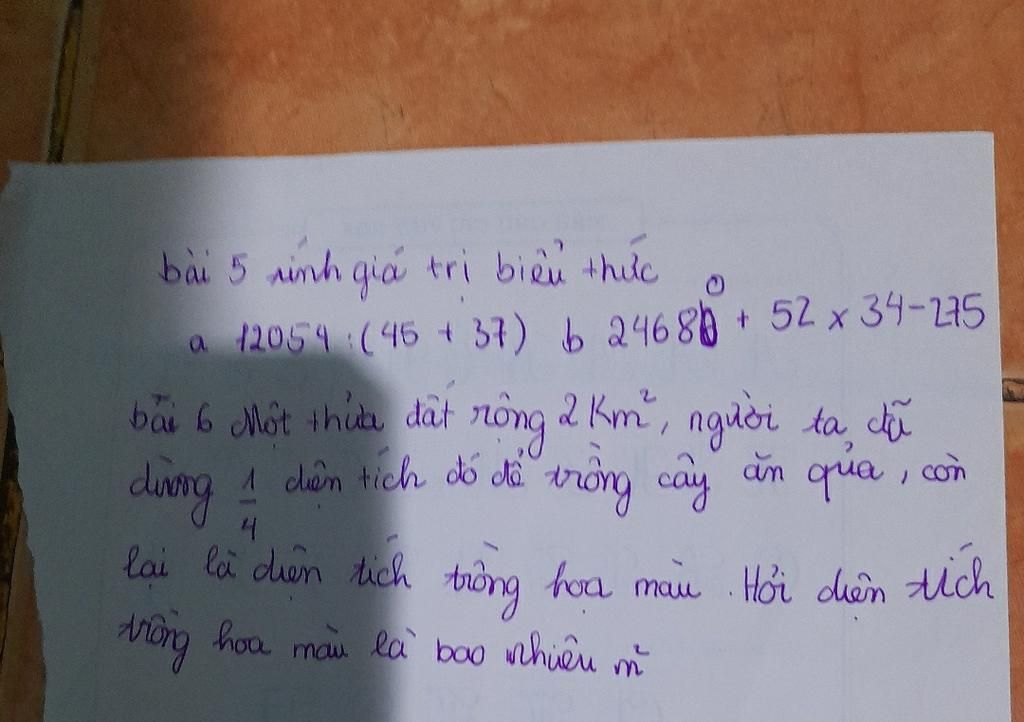 bài 5 tính giá trị biểu thức
a 12054 : (45 + 37) b 24680 + 52 x 34 - 275
bài 6 Một thửa đất rộng 2 Km², người ta đã
dùng 1/4 diện tích đó để trồng cây ăn qủa, còn
lại là diện tích trồng hoa màu. Hỏi diện tích
trồng hoa màu là bao nhiêu m²